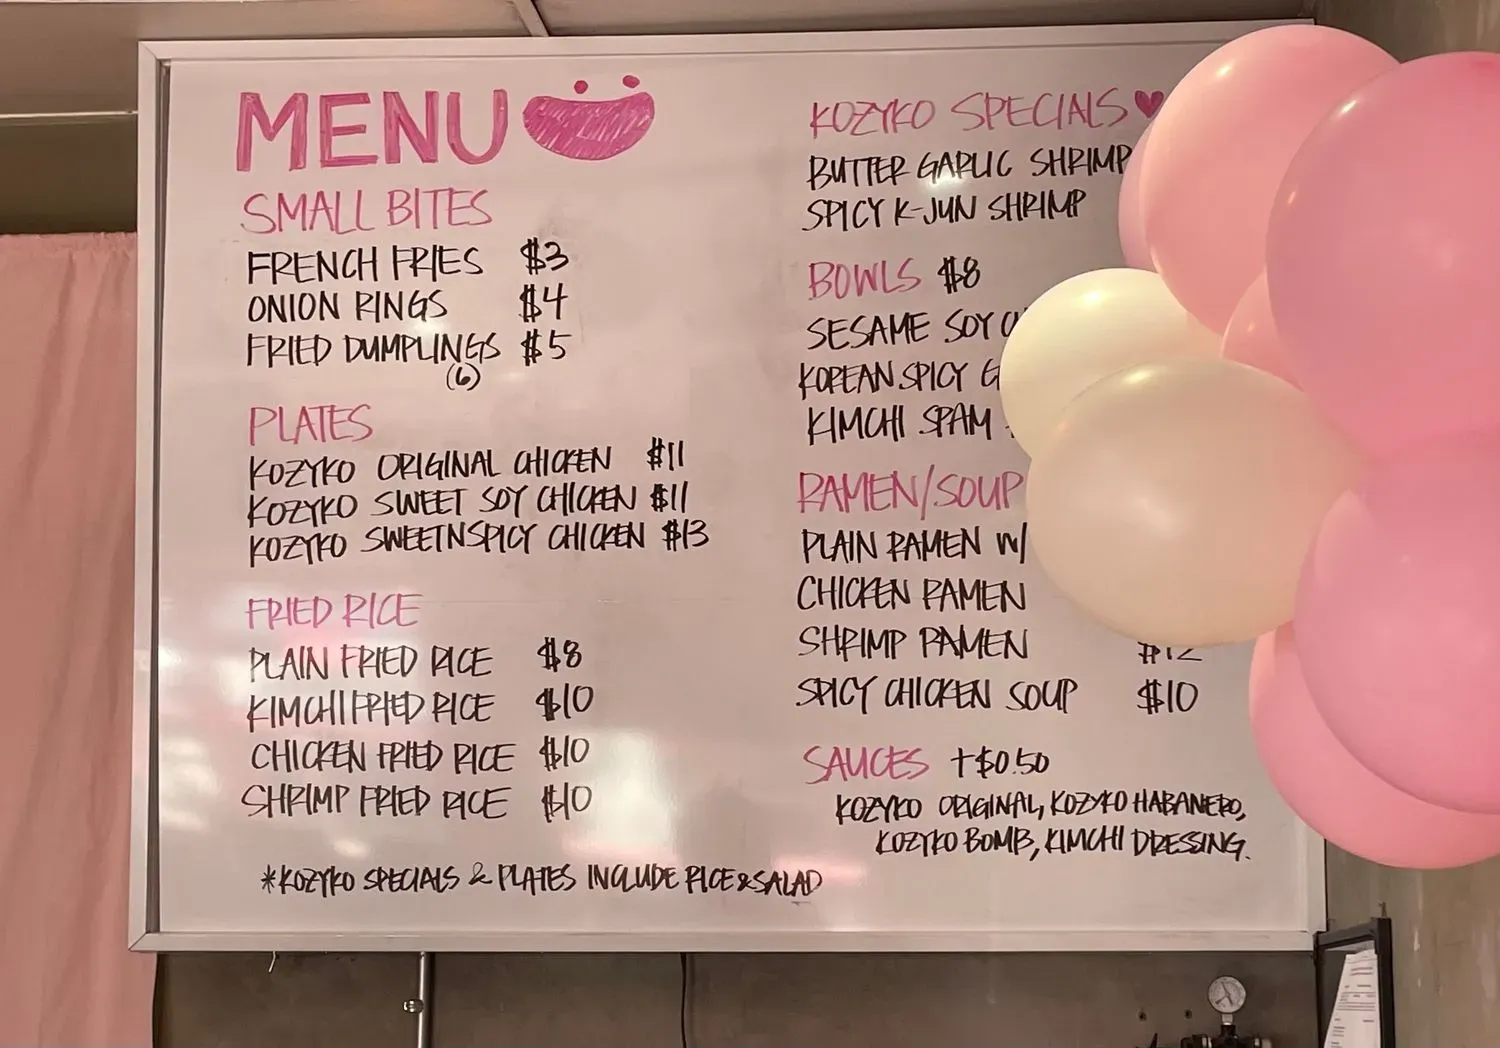 MENU
SMALL BITES
FRENCH FRIES $3
ONION RINGS $4
FRIED DUMPLINGS $5
(6)
PLATES
KOZYKO ORIGINAL CHICKEN $11
KOZYKO SWEET SOY CHICKEN $11
KOZYKO SWEETNSPICY CHICKEN $13
FRIED RICE
PLAIN FRIED RICE $8
KIMCHI FRIED RICE $10
CHICKEN FRIED RICE $10
SHRIMP FRIED RICE $10
*KOZYKO SPECIALS & PLATES INCLUDE RICE & SALAD
KOZYKO SPECIALS
BUTTER GARLIC SHRIMP
SPICY K-JUN SHRIMP
BOWLS $8
SESAME SOY
KOREAN SPICY
KIMCHI SPAM
RAMEN/SOUP
PLAIN RAMEN W/
CHICKEN RAMEN
SHRIMP RAMEN $12
SPICY CHICKEN SOUP $10
SAUCES +$0.50
KOZYKO ORIGINAL, KOZYKO HABANERO,
KOZYKO BOMB, KIMCHI DRESSING.